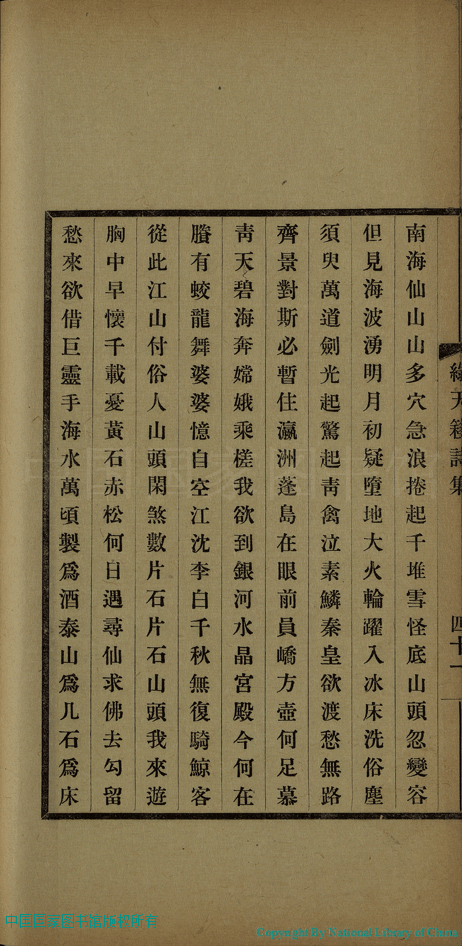 綠天簃詩集
四十一
南海仙山山多穴急浪捲起千堆雪怪底山頭忽變容
但見海波湧明月初疑墮地大火輪躍入冰床洗俗塵
須臾萬道劍光起驚起靑禽泣素鱗秦皇欲渡愁無路
齊景對斯必暫住瀛洲蓬島在眼前員嶠方壺何足慕
靑天碧海奔嫦娥乘槎我欲到銀河水晶宮殿今何在
賸有蛟龍舞婆婆憶自空江沈李白千秋無復騎鯨客
從此江山付俗人山頭閑煞數片石片石山頭我來遊
胸中早懷千載憂黃石赤松何日遇尋仙求佛去勾留
愁來欲借巨靈手海水萬頃製爲酒泰山爲几石爲床
中国国家图书馆版权所有
Copyright By National Library of China